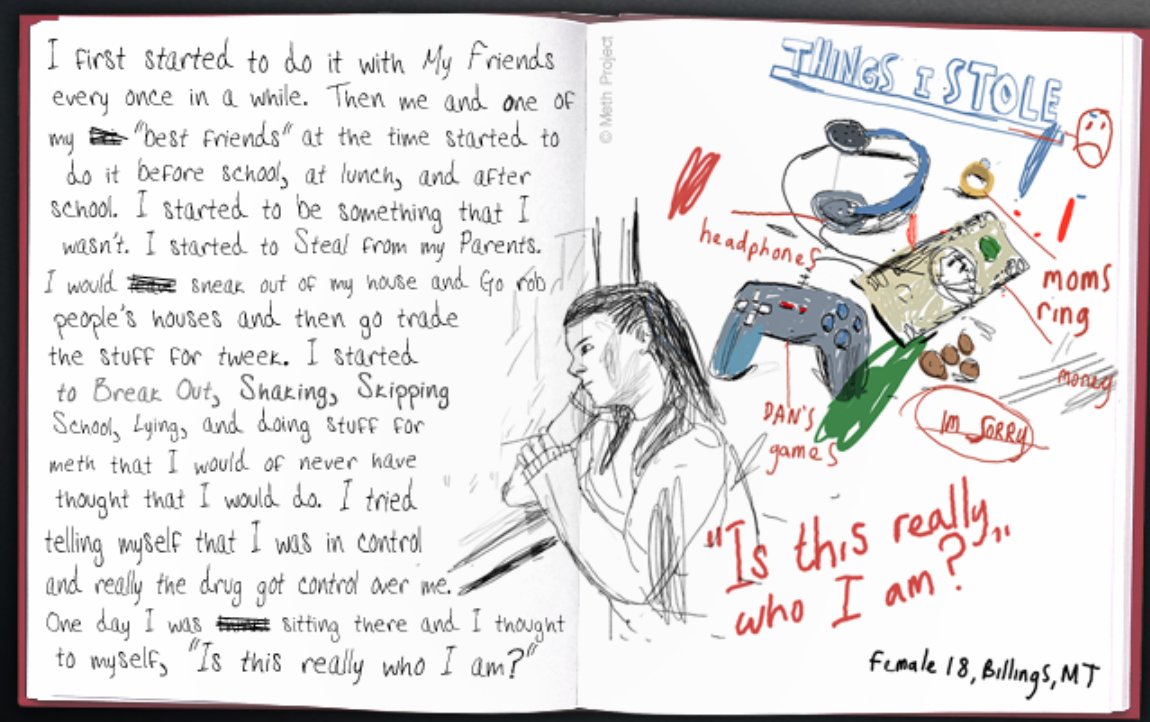 I first started to do it with My Friends
every once in a while. Then me and one of
my "best friends" at the time started to
do it before school, at lunch, and after
school. I started to be something that I
wasn't. I started to Steal from my Parents.
I would sneak out of my house and Go rob
people's houses and then go trade
the stuff for tweek. I started
to Break Out, Shaking, Skipping
School, Lying, and doing stuff for
meth that I would of never have
thought that I would do. I tried
telling myself that I was in control
and really the drug got control over me.
One day I was sitting there and I thought
to myself, "Is this really who I am?"
© Meth Project
THINGS I STOLE
headphones
moms
ring
money
DAN'S
games
IM SORRY
"Is this really,,
who I am?
Female 18, Billings, MT